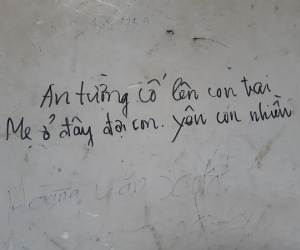 An tường cố lên con trai
Mẹ ở đây đợi con. yêu con nhiều